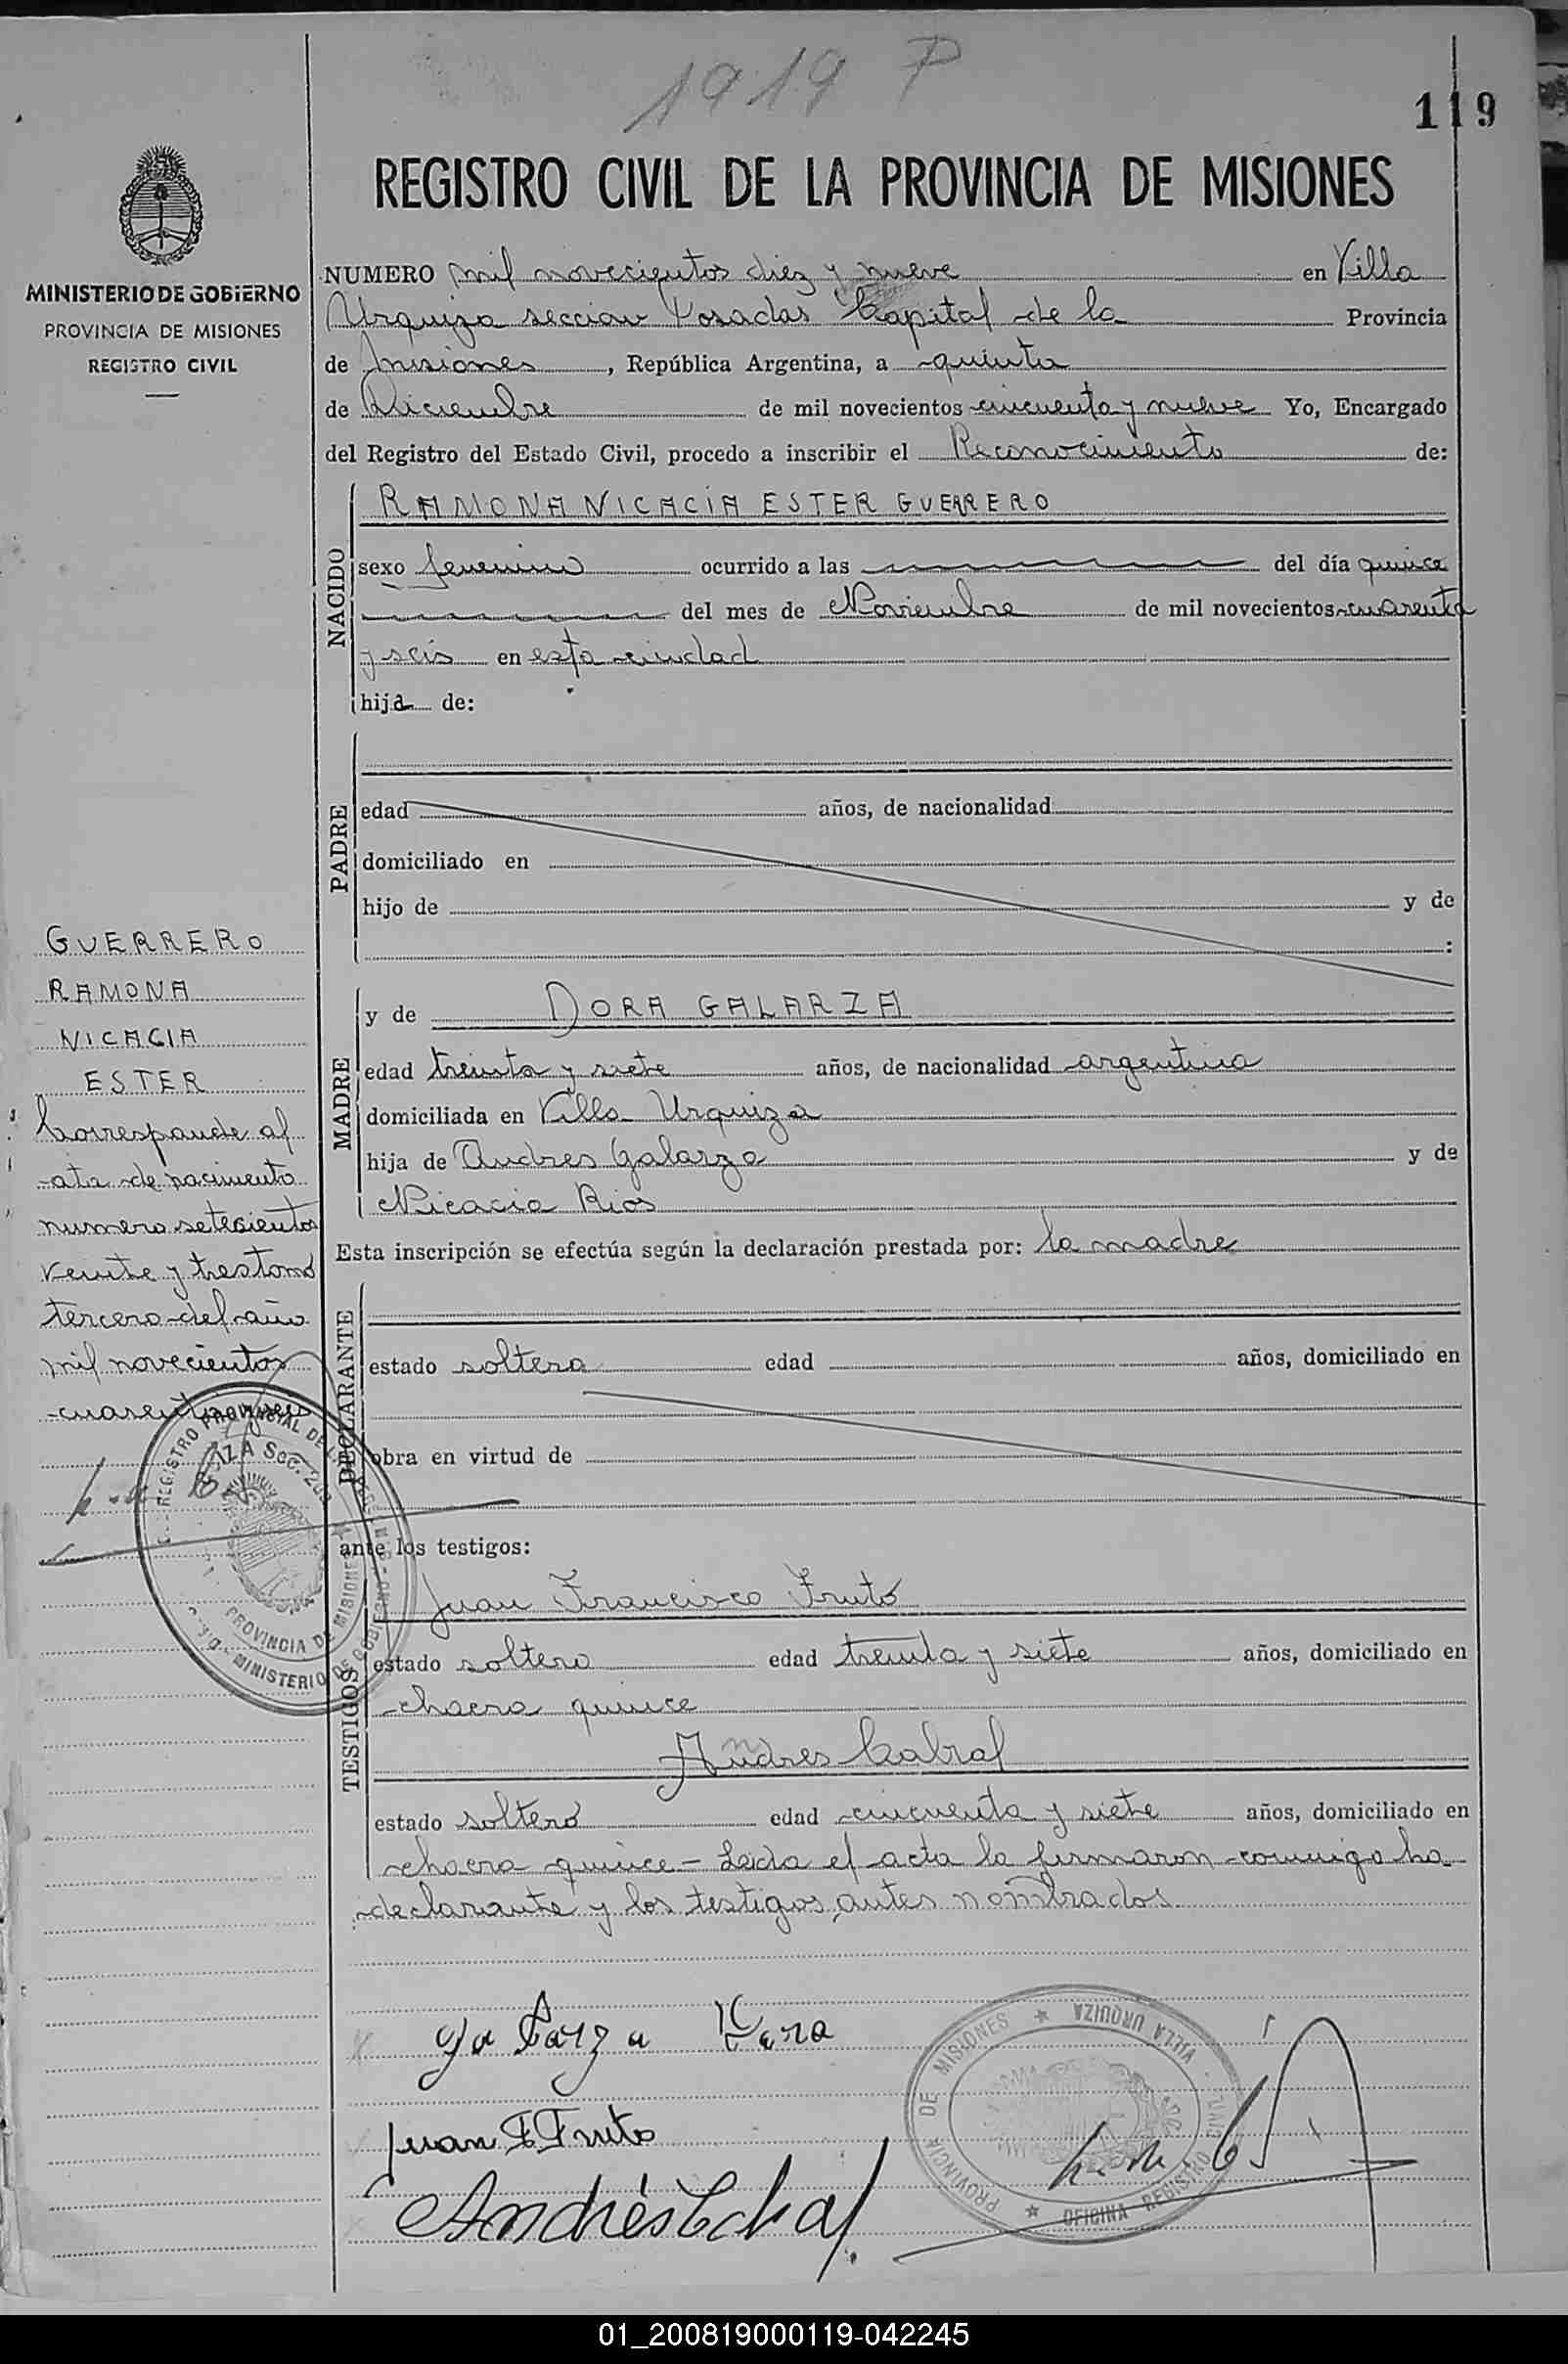 1919 P
119
REGISTRO CIVIL DE LA PROVINCIA DE MISIONES
MINISTERIO DE GOBIERNO
PROVINCIA DE MISIONES
REGISTRO CIVIL
NUMERO mil novecientos diez y nueve en Villa
Urquiza seccion Posadas Capital de la Provincia
de Misiones, República Argentina, a quinta
de Diciembre de mil novecientos cincuenta y nueve Yo, Encargado
del Registro del Estado Civil, procedo a inscribir el Reconocimiento de:
NACIDO
RAMONA NICACIA ESTER GUERRERO
sexo femenino ocurrido a las del día quince
del mes de Noviembre de mil novecientos cuarenta
y seis en esta ciudad
hija de:
PADRE
edad años, de nacionalidad
domiciliado en
hijo de y de
:
MADRE
y de DORA GALARZA
edad treinta y siete años, de nacionalidad argentina
domiciliada en Villa Urquiza
hija de Andres Galarza y de
Nicacia Rios
Esta inscripción se efectúa según la declaración prestada por: la madre
DECLARANTE
estado soltera edad años, domiciliado en
obra en virtud de
ante los testigos:
TESTIGOS
Juan Francisco Fruto
estado soltero edad treinta y siete años, domiciliado en
chacra quince
Andres Cabral
estado soltero edad cincuenta y siete años, domiciliado en
chacra quince - Leida el acta la firmaron conmigo la
declarante y los testigos antes nombrados.
GUERRERO
RAMONA
NICACIA
ESTER
Corresponde al
ata de nacimiento
numero setecientos
veinte y tres tomo
tercero del año
mil novecientos
cuarenta y seis
REGISTRO PROVINCIAL DE
PROVINCIA DE MISIONES
MINISTERIO DE GOBIERNO
Galarza
Juan F Fruto
Andrés Cabral
PROVINCIA DE MISIONES ★ VILLA URQUIZA
★ OFICINA REGISTRO CIVIL
01_200819000119-042245